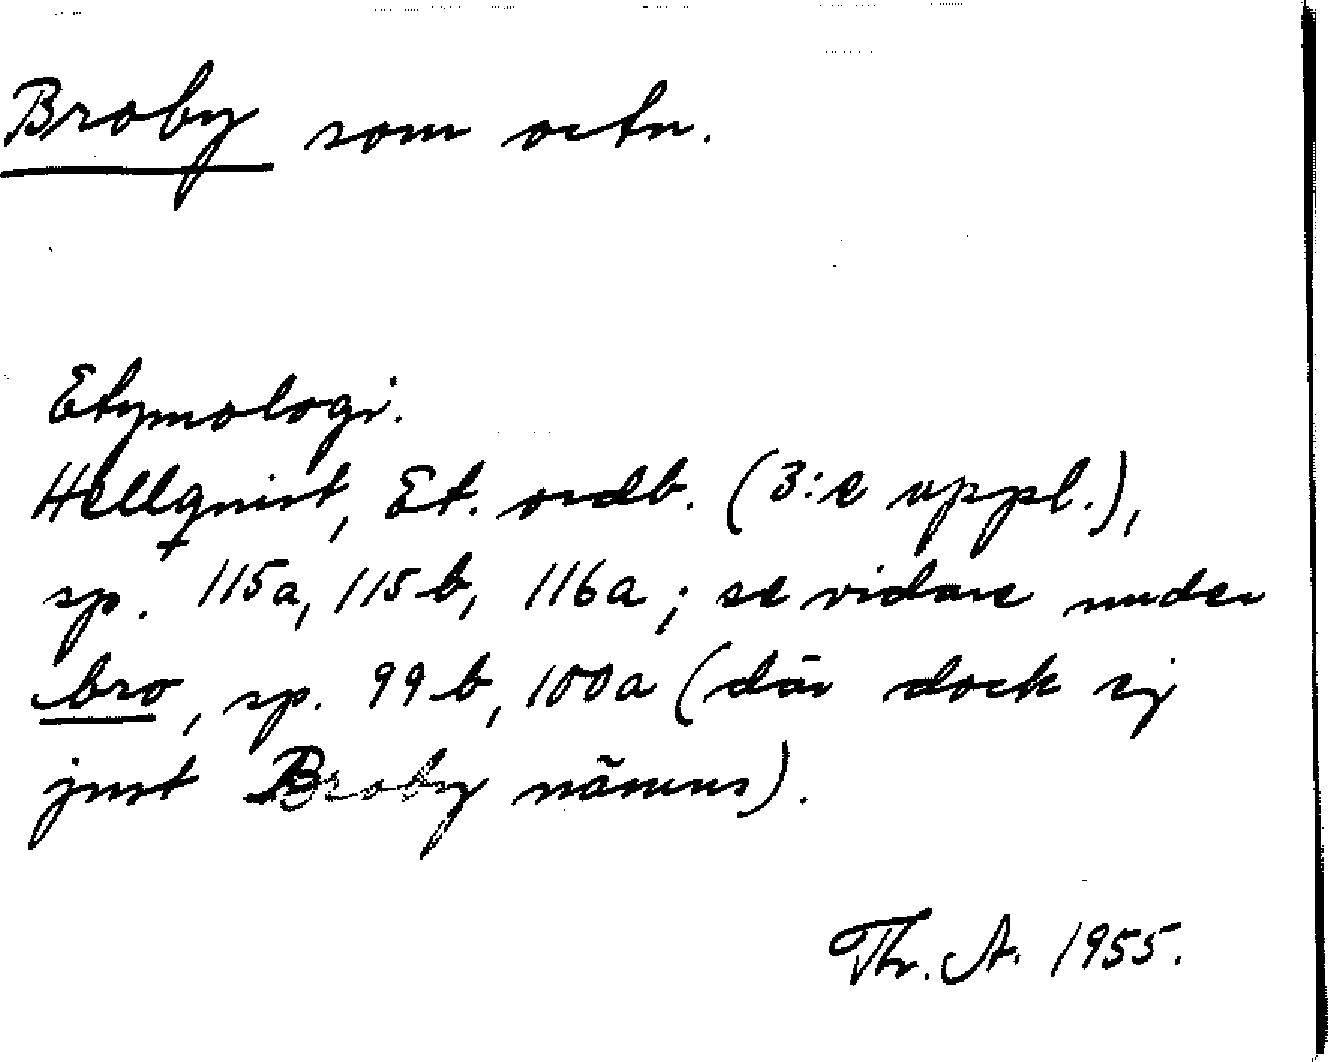 Broby som ortn.
Etymologi.
Hellquist, Et. ordb. (3:e uppl.),
sp. 115a, 115b, 116a; se vidare under
bro, sp. 99b, 100a (där dock ej
just Broby nämns).
Th. A. 1955.